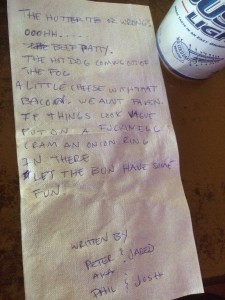 THE HUTTERITE OR WRONG?
OOOHH.....
THE BEST PATTY.
THE HOT DOG COMING OUT OF
THE FOG
A LITTLE CHEESE WITH THAT
BACON. WE AUNT
IF THINGS LOOK
PUT ON A FUCKING EGG
CRAM AN ONION RING
IN THERE
LET THE BUN HAVE SOME
FUN.
WRITTEN BY
PETER & JARED
AKA
PAUL & JOSH
LIGHT